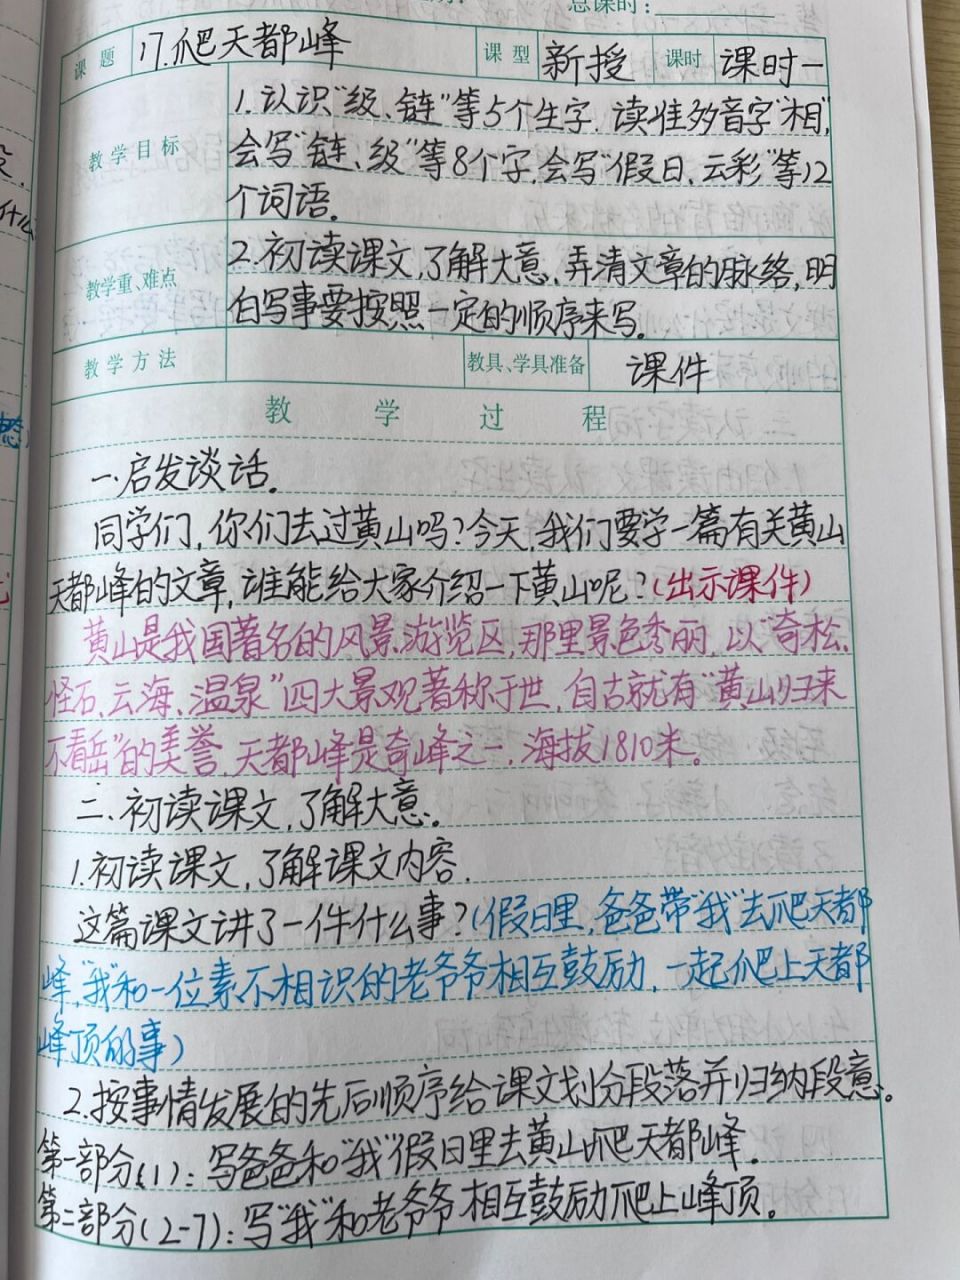 总课时：
课题 17.爬天都峰 课型 新授 课时 课时一
教学目标
1.认识“级、链”等5个生字.读准多音字“相”,
会写“链、级”等8个字,会写“假日、云彩”等12
个词语.
教学重、难点
2.初读课文,了解大意,弄清文章的脉络,明
白写事要按照一定的顺序来写.
教学方法 教具、学具准备 课件
教学过程
一.启发谈话.
同学们,你们去过黄山吗?今天,我们要学一篇有关黄山
天都峰的文章,谁能给大家介绍一下黄山呢?(出示课件)
黄山是我国著名的风景游览区,那里景色秀丽,以“奇松、
怪石、云海、温泉”四大景观著称于世,自古就有“黄山归来
不看岳”的美誉,天都峰是奇峰之一,海拔1810米。
二.初读课文,了解大意.
1.初读课文,了解课文内容.
这篇课文讲了一件什么事?(假日里,爸爸带“我”去爬天都
峰,“我”和一位素不相识的老爷爷相互鼓励,一起爬上天都
峰顶的事)
2.按事情发展的先后顺序给课文划分段落并归纳段意。
第一部分(1):写爸爸和“我”假日里去黄山爬天都峰.
第二部分(2-7):写“我”和老爷爷相互鼓励爬上峰顶。